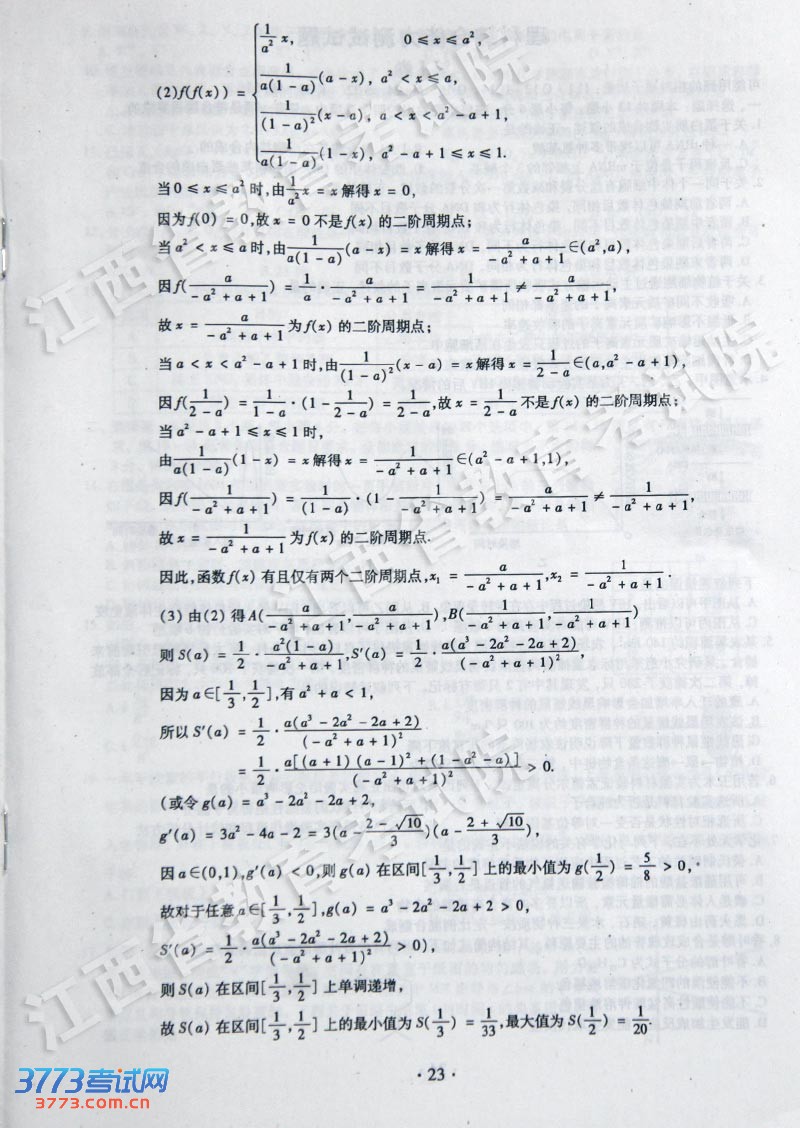 (2) f(f(x)) = { 1/a² x, 0 ≤ x ≤ a²,
1/(a(1 - a)) (a - x), a² < x ≤ a,
1/(1 - a)² (x - a), a < x < a² - a + 1,
1/(a(1 - a)) (1 - x), a² - a + 1 ≤ x ≤ 1.
当 0 ≤ x ≤ a² 时,由 1/a² x = x 解得 x = 0,
因为 f(0) = 0,故 x = 0 不是 f(x) 的二阶周期点;
当 a² < x ≤ a 时,由 1/(a(1 - a)) (a - x) = x 解得 x = a/(-a² + a + 1) ∈ (a², a),
因 f(a/(-a² + a + 1)) = 1/a · a/(-a² + a + 1) = 1/(-a² + a + 1) ≠ a/(-a² + a + 1),
故 x = a/(-a² + a + 1) 为 f(x) 的二阶周期点;
当 a < x < a² - a + 1 时,由 1/(1 - a)² (x - a) = x 解得 x = 1/(2 - a) ∈ (a, a² - a + 1),
因 f(1/(2 - a)) = 1/(1 - a) · (1 - 1/(2 - a)) = 1/(2 - a),故 x = 1/(2 - a) 不是 f(x) 的二阶周期点;
当 a² - a + 1 ≤ x ≤ 1 时,
由 1/(a(1 - a)) (1 - x) = x 解得 x = 1/(-a² + a + 1) ∈ (a² - a + 1, 1),
因 f(1/(-a² + a + 1)) = 1/(1 - a) · (1 - 1/(-a² + a + 1)) = a/(-a² + a + 1) ≠ 1/(-a² + a + 1),
故 x = 1/(-a² + a + 1) 为 f(x) 的二阶周期点.
因此,函数 f(x) 有且仅有两个二阶周期点, x₁ = a/(-a² + a + 1), x₂ = 1/(-a² + a + 1).
(3) 由(2) 得 A(a/(-a² + a + 1), a/(-a² + a + 1)), B(1/(-a² + a + 1), 1/(-a² + a + 1))
则 S(a) = 1/2 · a²(1 - a)/(-a² + a + 1), S′(a) = 1/2 · a(a³ - 2a² - 2a + 2)/(-a² + a + 1)²,
因为 a ∈ [1/3, 1/2],有 a² + a < 1,
所以 S′(a) = 1/2 · a(a³ - 2a² - 2a + 2)/(-a² + a + 1)²
= 1/2 · a[(a + 1)(a - 1)² + (1 - a² - a)]/(-a² + a + 1)² > 0.
(或令 g(a) = a³ - 2a² - 2a + 2,
g′(a) = 3a² - 4a - 2 = 3(a - (2 - √10)/3)(a - (2 + √10)/3),
因 a ∈ (0,1), g′(a) < 0,则 g(a) 在区间[1/3, 1/2] 上的最小值为 g(1/2) = 5/8 > 0,
故对于任意 a ∈ [1/3, 1/2], g(a) = a³ - 2a² - 2a + 2 > 0,
S′(a) = 1/2 · a(a³ - 2a² - 2a + 2)/(-a² + a + 1)² > 0),
则 S(a) 在区间[1/3, 1/2] 上单调递增,
故 S(a) 在区间[1/3, 1/2] 上的最小值为 S(1/3) = 1/33,最大值为 S(1/2) = 1/20.
· 23 ·
江西省教育考试院
江西省教育考试院
江西省教育考试院
3773考试网
3773.com.cn